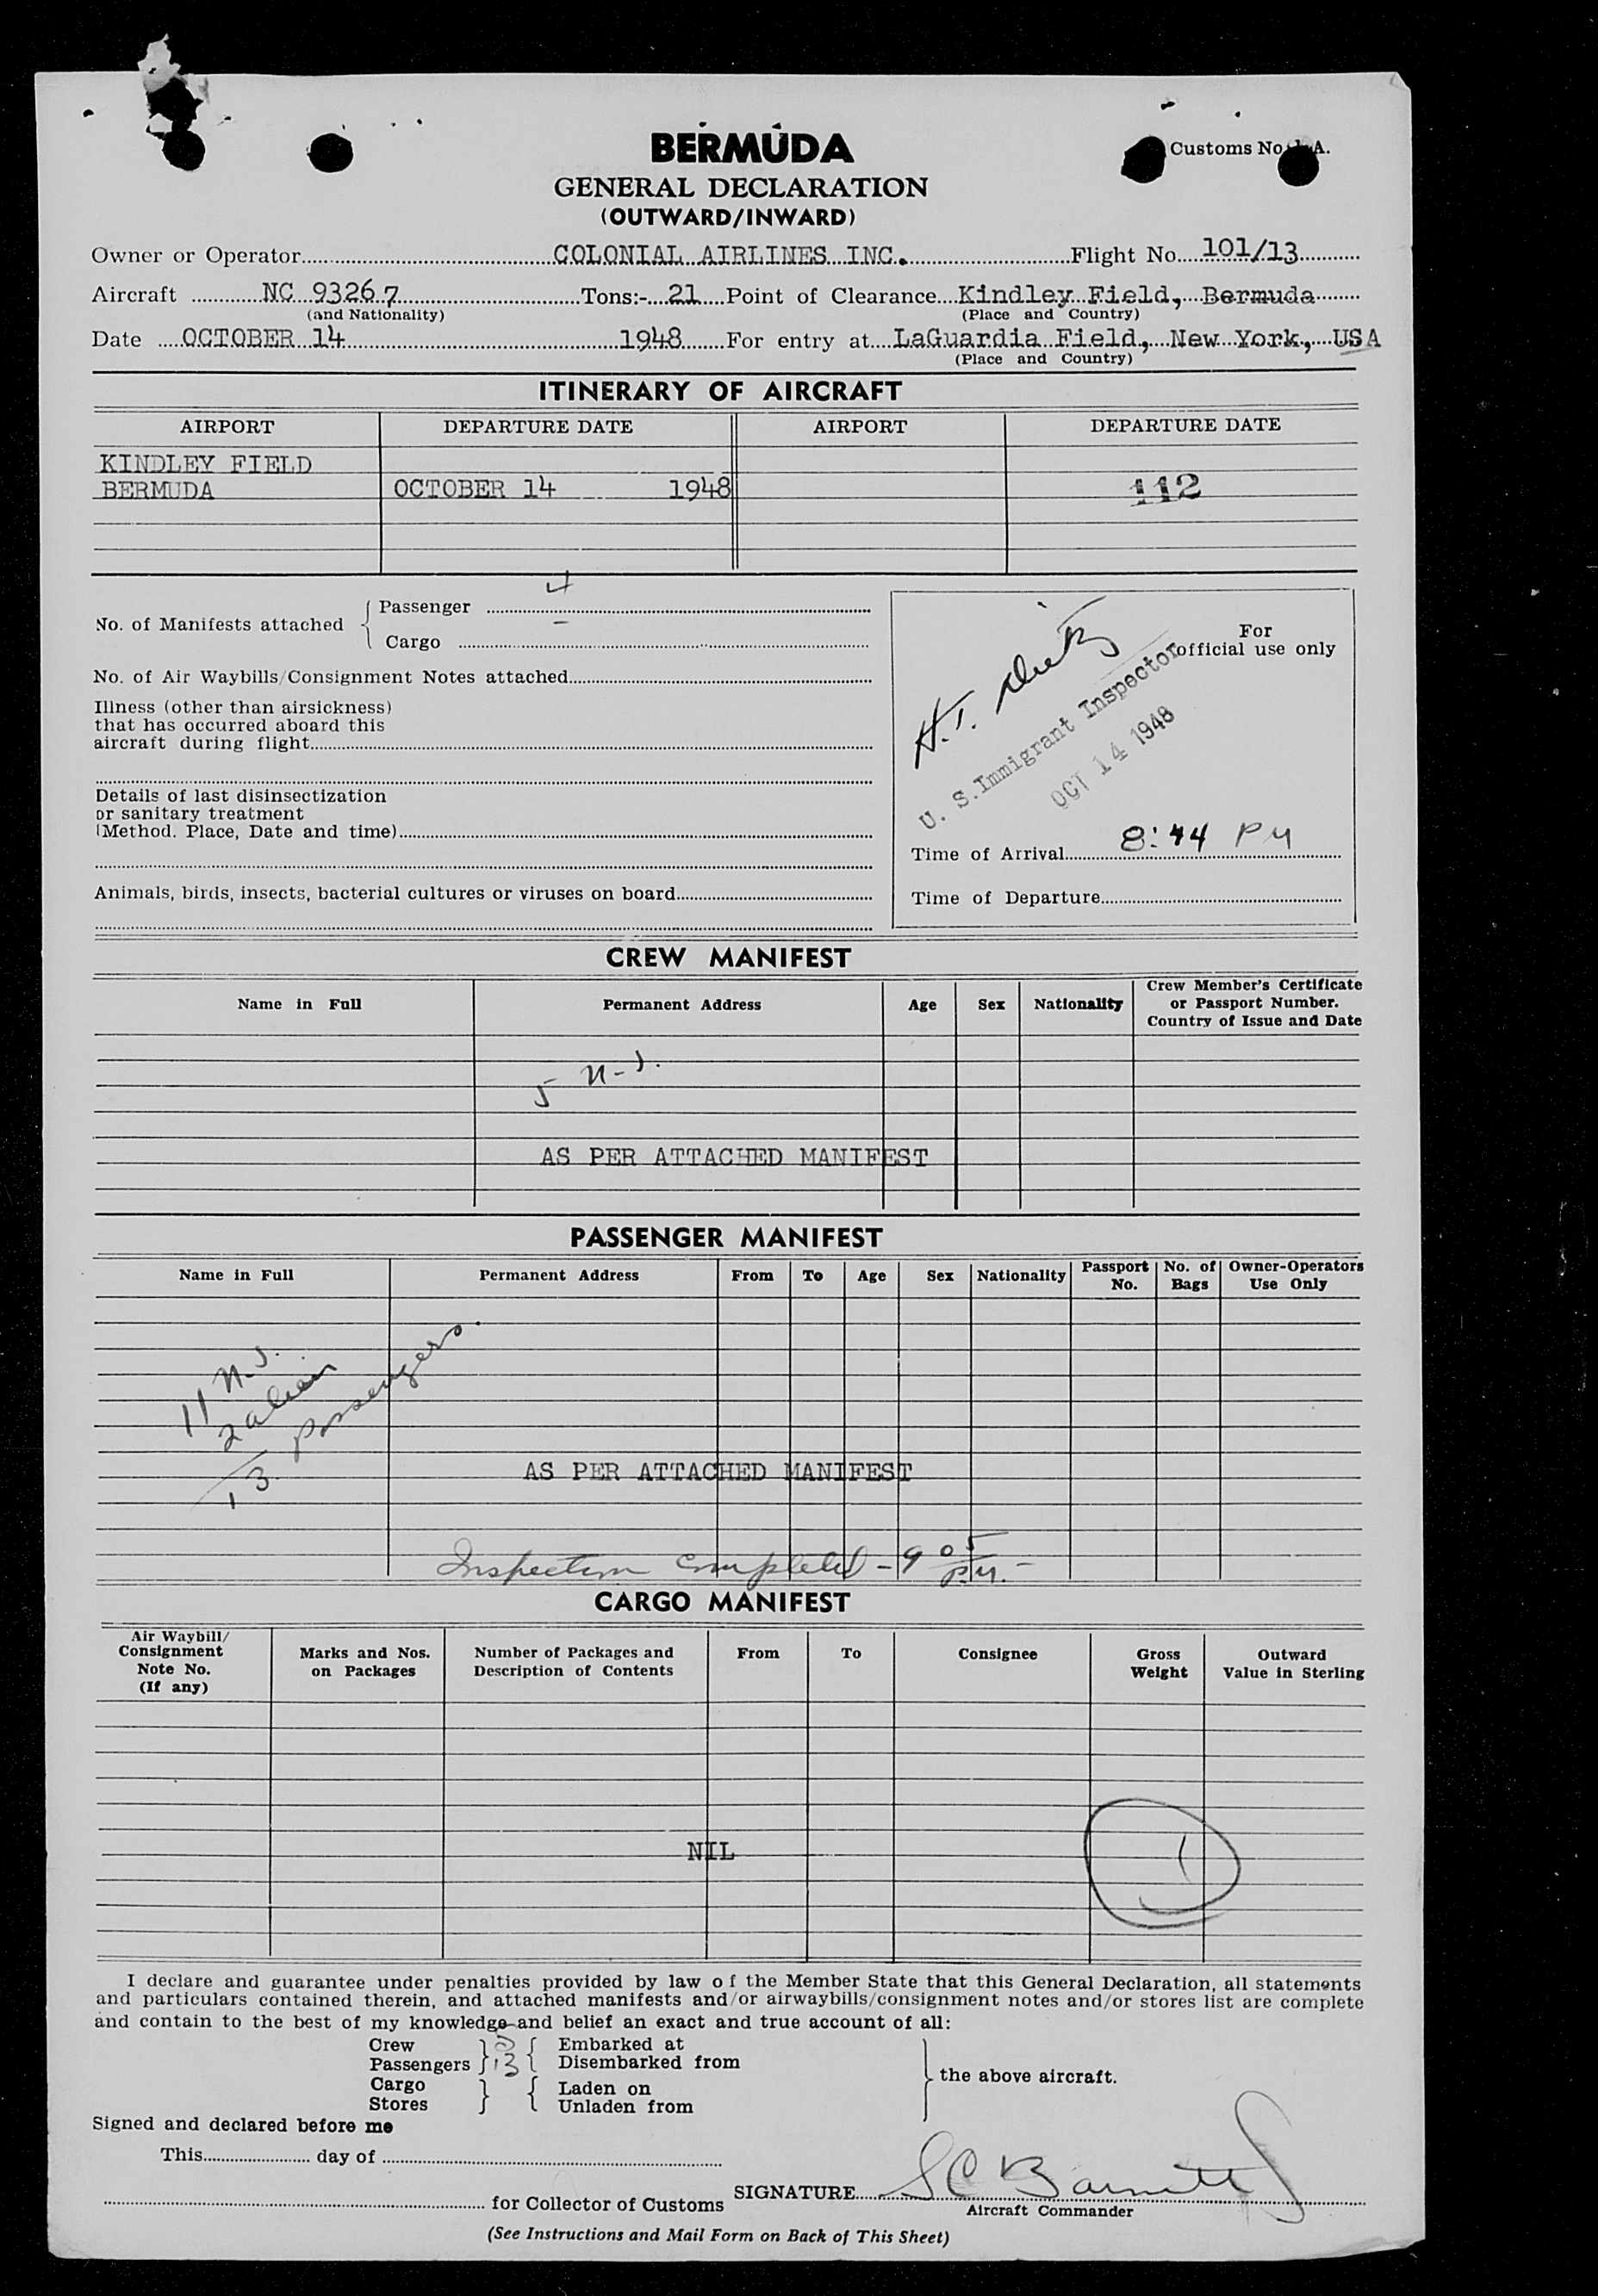 BERMUDA
Customs No. A.
GENERAL DECLARATION
(OUTWARD/INWARD)
Owner or Operator COLONIAL AIRLINES INC. Flight No. 101/13
Aircraft NC 93267 Tons:- 21 Point of Clearance Kindley Field, Bermuda
(and Nationality) (Place and Country)
Date OCTOBER 14 1948 For entry at LaGuardia Field, New York, USA
(Place and Country)
ITINERARY OF AIRCRAFT
AIRPORT DEPARTURE DATE AIRPORT DEPARTURE DATE
KINDLEY FIELD
BERMUDA OCTOBER 14 1948 112
No. of Manifests attached { Passenger 4
Cargo –
No. of Air Waybills/Consignment Notes attached
Illness (other than airsickness)
that has occurred aboard this
aircraft during flight
Details of last disinsectization
or sanitary treatment
(Method. Place, Date and time)
Animals, birds, insects, bacterial cultures or viruses on board
For
official use only
H.T.
U. S. Immigrant Inspector
OCT 14 1948
Time of Arrival 8:44 PM
Time of Departure
CREW MANIFEST
Name in Full Permanent Address Age Sex Nationality Crew Member's Certificate
or Passport Number.
Country of Issue and Date
5
AS PER ATTACHED MANIFEST
PASSENGER MANIFEST
Name in Full Permanent Address From To Age Sex Nationality Passport No. No. of Bags Owner-Operators Use Only
11
2 alien
13 passengers.
AS PER ATTACHED MANIFEST
Inspection completed - 9 05 P.M. -
CARGO MANIFEST
Air Waybill/
Consignment
Note No.
(If any)
Marks and Nos.
on Packages
Number of Packages and
Description of Contents
From To Consignee Gross
Weight
Outward
Value in Sterling
NIL
I declare and guarantee under penalties provided by law of the Member State that this General Declaration, all statements
and particulars contained therein, and attached manifests and/or airwaybills/consignment notes and/or stores list are complete
and contain to the best of my knowledge and belief an exact and true account of all:
Crew Embarked at
Passengers 13 Disembarked from
the above aircraft.
Cargo Laden on
Stores Unladen from
Signed and declared before me
This day of
for Collector of Customs
SIGNATURE S C Barnett
Aircraft Commander
(See Instructions and Mail Form on Back of This Sheet)